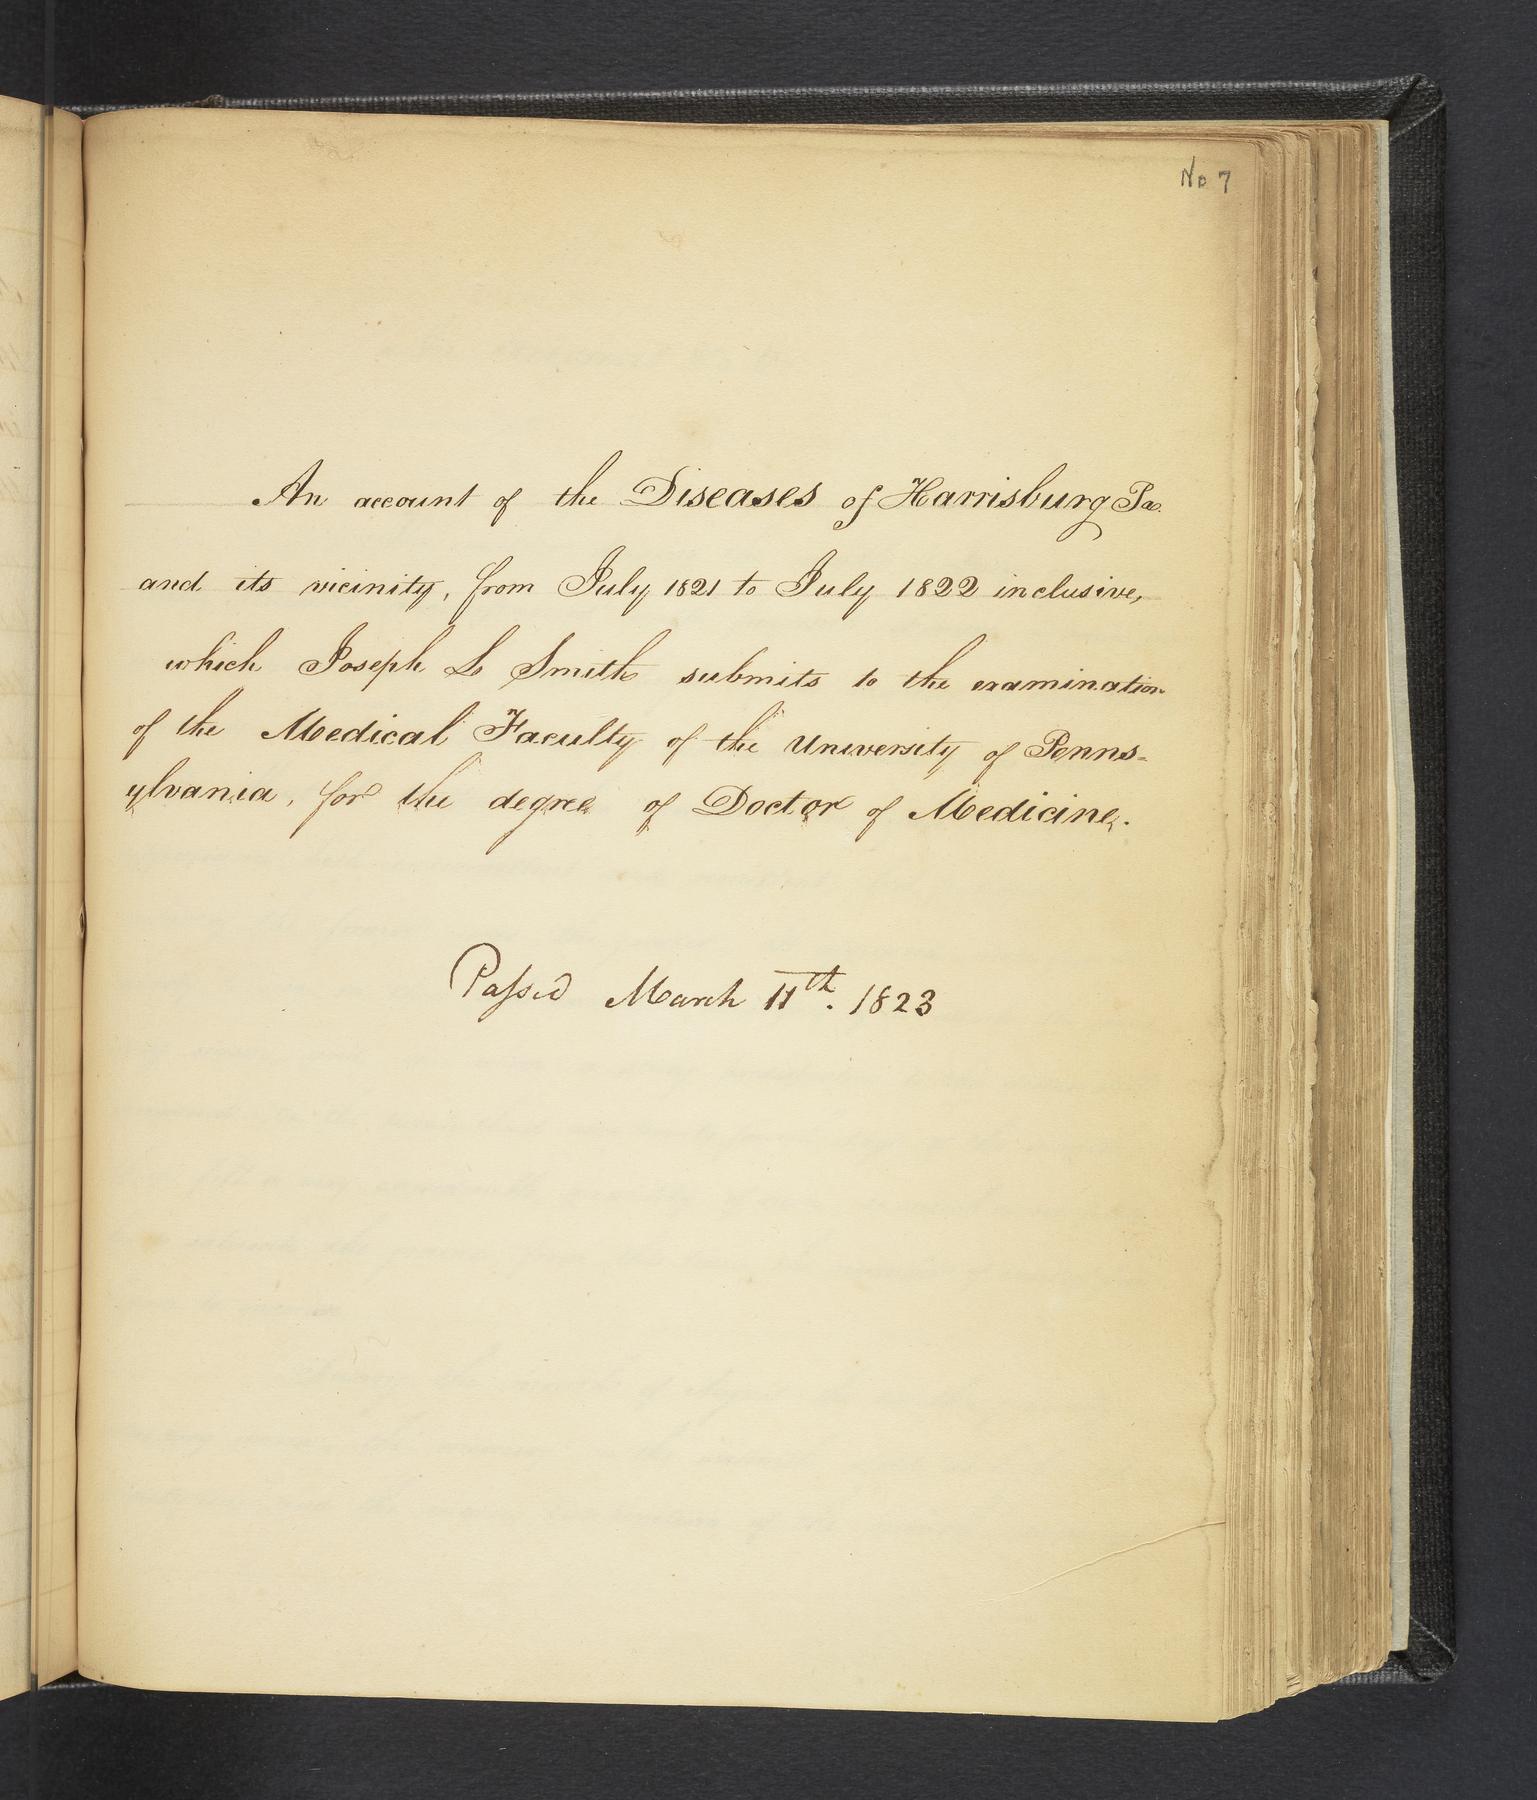 No 7
An account of the Diseases of Harrisburg Pa.
and its vicinity, from July 1821 to July 1822 inclusive,
which Joseph L Smith submits to the examination
of the Medical Faculty of the University of Penns=
ylvania, for the degree of Doctor of Medicine.
Passed March 11th. 1823